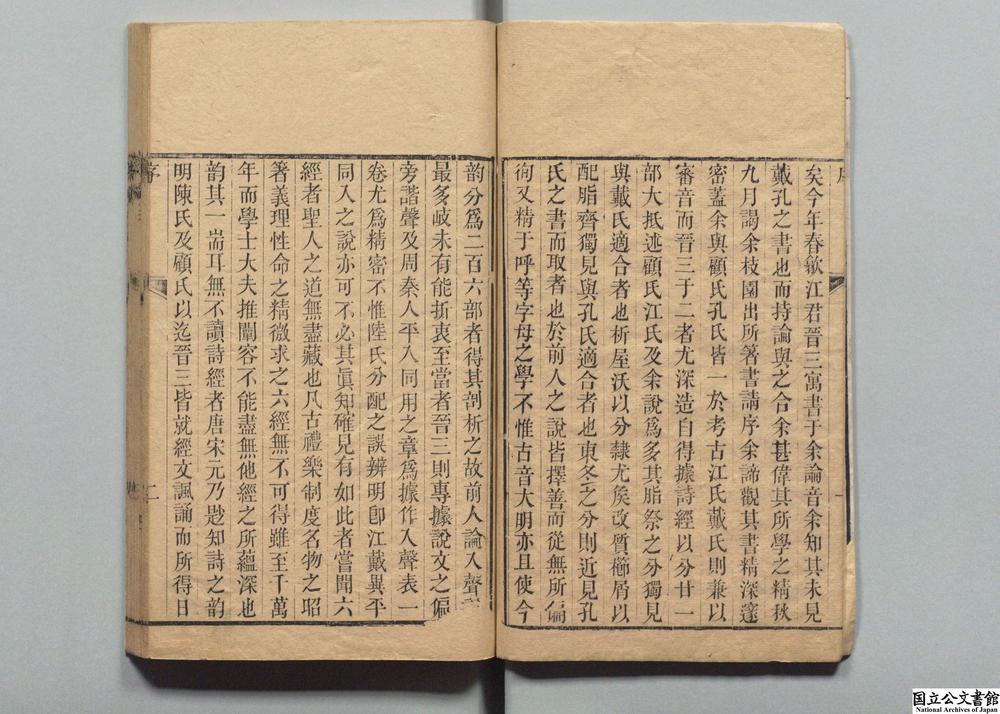 矣今年春歙江君晉三寓書于余論音余知其未見
戴孔之書也而持論與之合余甚偉其所學之精秋
九月謁余枝園出所箸書請序余諦觀其書精深邃
密蓋余與顧氏孔氏皆一於考古江氏戴氏則兼以
審音而晉三于二者尤深造自得據詩經以分廿一
部大抵述顧氏江氏及余說爲多其脂祭之分獨見
與戴氏適合者也析屋沃以分隸尤矦改質櫛屑以
配脂齊獨見與孔氏適合者也東冬之分則近見孔
氏之書而取者也於前人之說皆擇善而從無所偏
徇又精于呼等字母之學不惟古音大明亦且使今
韵分爲二百六部者得其剖析之故前人論入聲
最多岐未有能折衷至當者晉三則專據說文之偏
旁諧聲及周秦人平入同用之章爲據作入聲表一
卷尤爲精密不惟陸氏分配之誤辨明卽江戴異平
同入之說亦可不必其眞知確見有如此者嘗聞六
經者聖人之道無盡藏也凡古禮樂制度名物之昭
箸義理性命之精微求之六經無不可得雖至千萬
年而學士大夫推闡容不能盡無他經之所蘊深也
韵其一耑耳無不讀詩經者唐宋元乃尟知詩之韵
明陳氏及顧氏以迄晉三皆就經文諷誦而所得日
序
二
国立公文書館
National Archives of Japan